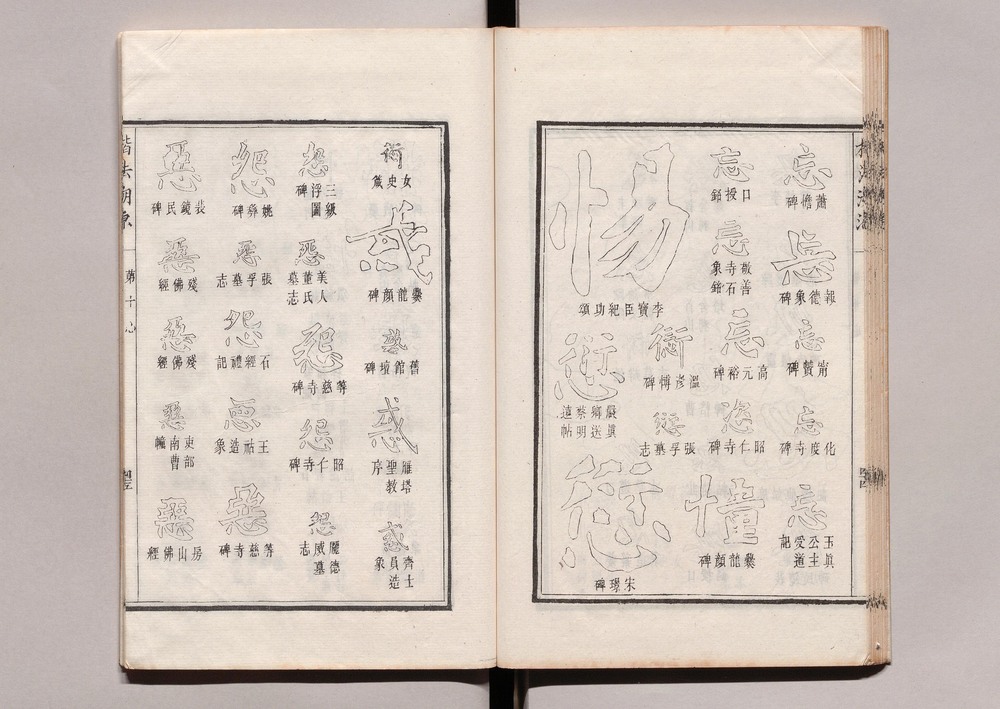 忘
蕭憺碑
忘
報德象碑
忘
甯贊碑
忘
化度寺碑
忘
玉眞公主
愛道記
忘
口授銘
忘
敬善寺
石象銘
忘
高元裕碑
恣
昭仁寺碑
爨龍顏碑
李寶臣紀功頌
溫彥博碑
愆
張孚墓志
愆
顏眞卿送
蔡明遠帖
愆
宋璟碑
女史箴
惑
爨龍顏碑
惑
舊館壇碑
惑
雁塔聖教
序
惑
齊士員造
象
怨
三級浮圖
碑
惡
美人董氏
墓志
怨
等慈寺碑
怨
昭仁寺碑
怨
麗德威墓
志
怨
姚彝碑
惡
張孚墓志
怨
石經禮記
惡
王祜造象
惡
等慈寺碑
惡
裴鏡民碑
惡
殘佛經
惡
殘佛經
惡
吏部南曹
幢
惡
房山佛經
楷法溯源
第十
心